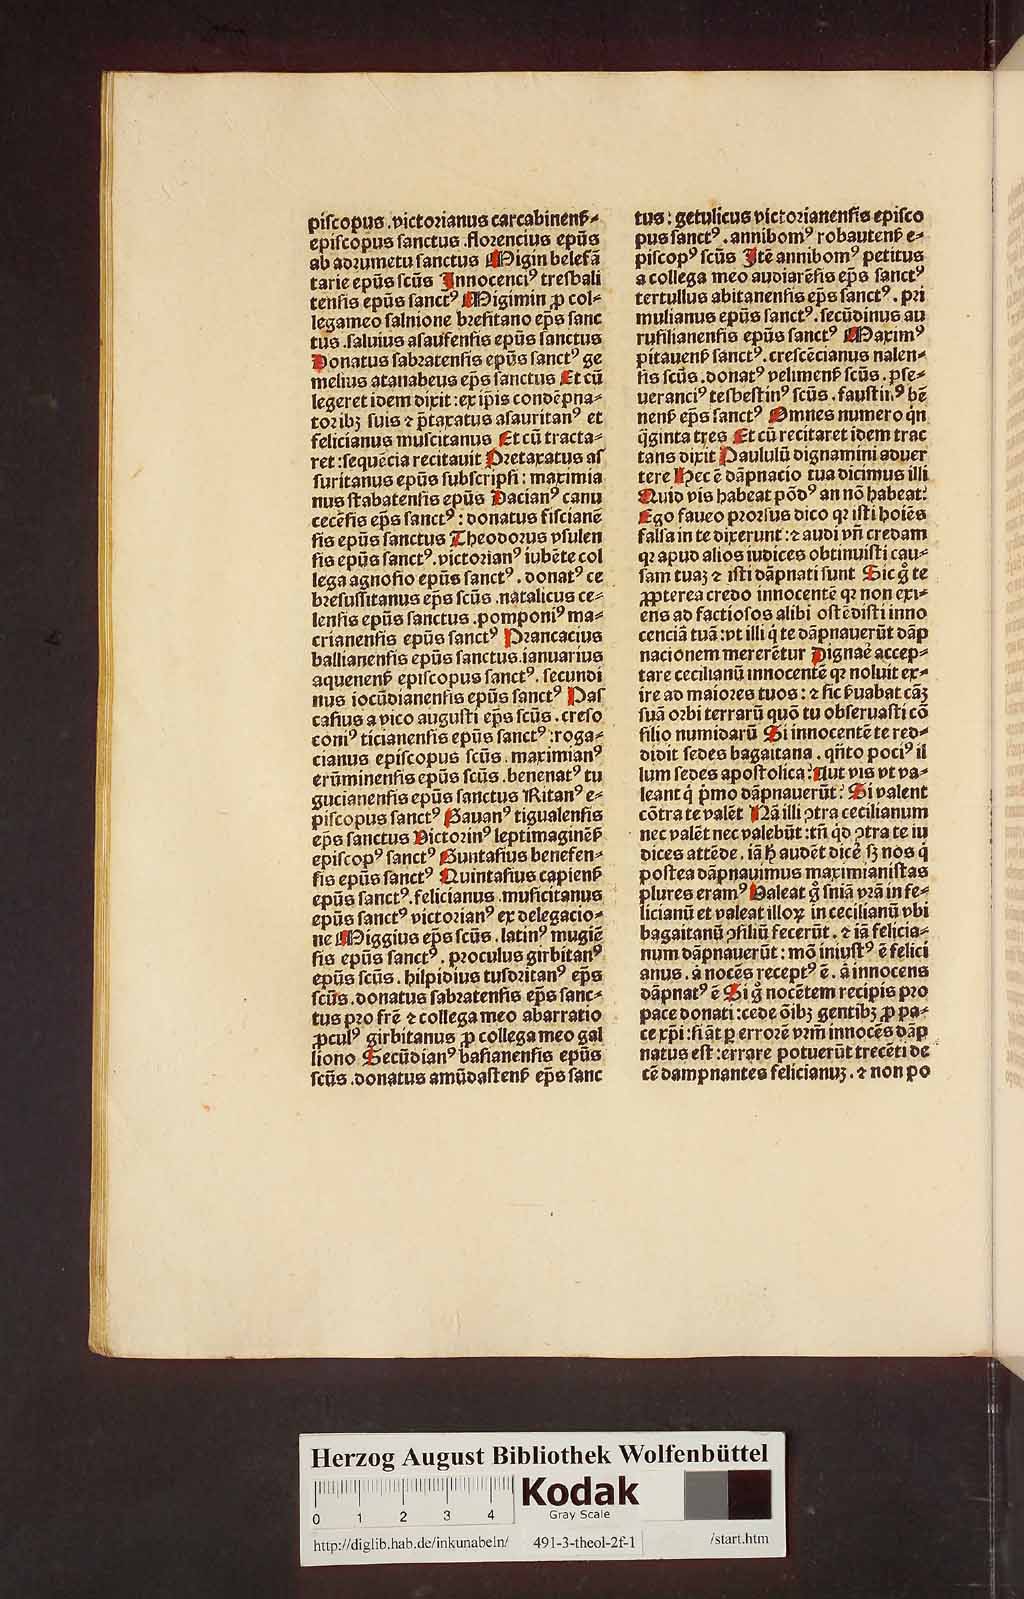 piſcopus .victorianus carcabinenꝭ⸗
epiſcopus ſanctus .florencius ep̄us
ab adrumetu ſanctus Migin belefā
tarie ep̄us ſc̄us Innocenciꝰ tresbali
tenſis ep̄us ſanctꝰ Migimin ꝓ col⸗
legameo ſalnione breſitano ep̄s ſanc
tus .ſaluius aſaufenſis ep̄us ſanctus
Donatus ſabratenſis ep̄us ſanctꝰ ge
melius atanabeus ep̄s ſanctus Et cū
legeret idem dixit : ex ip̄is condēpna⸗
toribꝫ ſuis ⁊ p̄taxatus aſauritanꝰ et
felicianus muſcitanus Et cū tracta⸗
ret : ſequēcia recitauit Pretaxatus aſ
ſuritanus ep̄us ſubſcripſi : maximia
nus ſtabatenſis ep̄us Dacianꝰ canu
cecēſis ep̄s ſanctꝰ : donatus fiſcianē
ſis ep̄us ſanctus Theodorus vſulen
ſis ep̄us ſanctꝰ .victorianꝰ iubēte col
lega agnoſio ep̄us ſanctꝰ . donatꝰ ce
breſuſſitanus ep̄s ſc̄us .natalicus ce⸗
lenſis ep̄us ſanctus .pomponiꝰ ma⸗
crianenſis ep̄us ſanctꝰ Prancacius
ballianenſis ep̄us ſanctus.ianuarius
aquenenꝭ epiſcopus ſanctꝰ. ſecundi
nus iocūdianenſis ep̄us ſanctꝰ Paſ
caſius a vico auguſti ep̄s ſc̄us .creſo
coniꝰ ticianenſis ep̄us ſanctꝰ :roga⸗
cianus epiſcopus ſc̄us . maximianꝰ
erūminenſis ep̄us ſc̄us .benenatꝰ tu
gucianenſis ep̄us ſanctus Ritanꝰ e⸗
piſcopus ſanctꝰ Gauanꝰ tigualenſis
ep̄s ſanctus Victorinꝰ leptimaginēꝭ
epiſcopꝰ ſanctꝰ Guntaſius benefen⸗
ſis ep̄us ſanctꝰ Quintaſius capienꝭ
ep̄us ſanctꝰ. felicianus .muſicitanus
ep̄us ſanctꝰ victorianꝰ ex delegacio⸗
ne Miggius ep̄s ſc̄us . latinꝰ mugiē
ſis ep̄us ſanctꝰ . proculus girbitanꝰ
ep̄us ſc̄us . hilpidius tuſdritanꝰ ep̄s
ſc̄us .donatus ſabratenſis ep̄s ſanc⸗
tus pro fr̄e ⁊ collega meo abarratio
ꝓculꝰ girbitanus ꝓ collega meo gal
liono Secūdianꝰ baſianenſis ep̄us
ſc̄us .donatus amūdaſtenꝭ ep̄s ſanc
tus : getulicus victorianenſis epiſco
pus ſanctꝰ . annibomꝰ robautenꝭ e⸗
piſcopꝰ ſc̄us Itē annibomꝰ petitus
a collega meo audiarēſis ep̄s ſanctꝰ
tertullus abitanenſis ep̄s ſanctꝰ . pri
mulianus ep̄us ſanctꝰ. ſecūdinus au
rufilianenſis ep̄us ſanctꝰ Maximꝰ
pitauenꝭ ſanctꝰ. creſcēcianus nalen⸗
ſis ſc̄us .donatꝰ velimenꝭ ſc̄us . pſe⸗
ueranciꝰ tesbeſtinꝰ ſc̄us . fauſtinꝰ bē
nenꝭ ep̄s ſanctꝰ Omnes numero qn̄
q̄ginta tres Et cū recitaret idem trac
tans dixit Paululū dignamini aduer
tere Hec ē dāpnacio tua dicimus illi
Quid vis habeat pōdꝰ an nō habeat?
Ego faueo prorſus dico qꝛ iſti hoīes
falſa in te dixerunt : ⁊ audi vn̄ credam
qꝛ apud alios iudices obtinuiſti cau⸗
ſam tuaꝫ ⁊ iſti dāpnati ſunt Sic gͦ te
ꝓpterea credo innocentē qꝛ non exi⸗
ens ad factioſos alibi oſtēdiſti inno
cenciā tuā : vt illi q̇ te dāpnauerūt dāp
nacionem mererētur Dignaꝛe accep⸗
tare cecilianū innocentē qꝛ noluit ex⸗
ire ad maiores tuos : ⁊ ſic ẜuabat cāꝫ
ſuā orbi terrarū quō tu obſeruaſti cō
ſilio numidarū Si innocentē te red⸗
didit ſedes bagaitana . qn̄to pociꝰ il
lum ſedes apoſtolica? Aut vis vt va⸗
leant q̇ p̄mo dāpnauerūt? Si valent
cōtra te valēt Nā illi ↄtra cecilianum
nec valēt nec valebūt : tn̄ qd̄ ↄtra te iu
dices attēde . iā ħ audēt dice̾ ſꝫ nos q̇
poſtea dāpnauimus maximianiſtas
plures eramꝰ Valeat gͦ ſnīa vr̄a in fe⸗
licianū et valeat illoꝝ in cecilianū vbi
bagaitanū ↄſiliū fecerūt . ⁊ iā felicia⸗
num dāpnauerūt : mō iniuſtꝰ ē felici
anus . ā nocēs receptꝰ ē . ā innocens
dāpnatꝰ ē Si gͦ nocētem recipis pro
pace donati : cede oībꝫ gentibꝫ ꝓ pa⸗
ce xp̄i : ſi āt ꝑ errorē vr̄m innocēs dāp
natus eſt : errare potuerūt trecēti de
cē dampnantes felicianuꝫ . ⁊ non po
Herzog August Bibliothek Wolfenbüttel
0 1 2 3 4
Kodak
Gray Scale
http://diglib.hab.de/inkunabeln/ 491-3-theol-2f-1 /start.htm